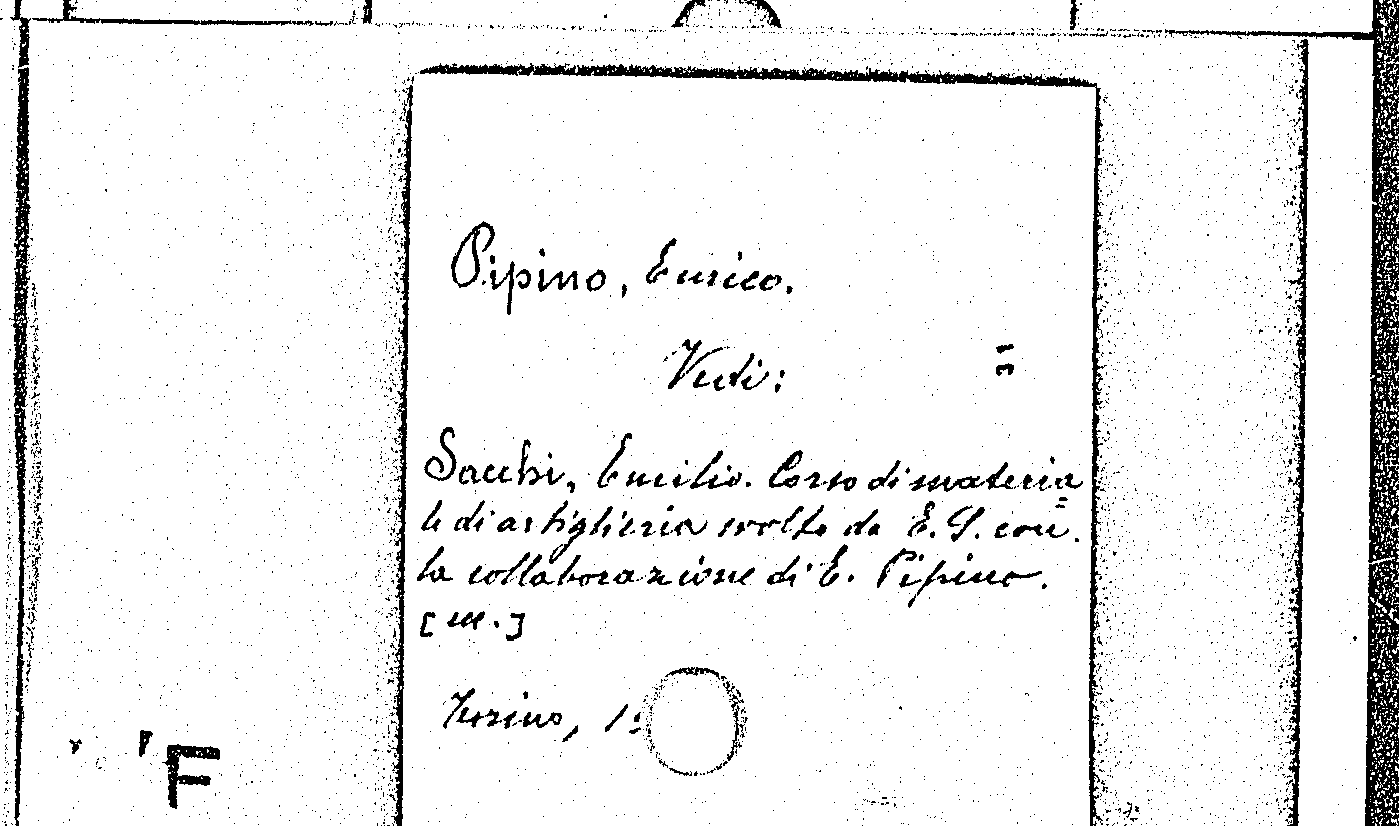 Pipino, Enrico.
Vedi:
Sacchi, Emilio. Corso di materia=
le di artiglieria svolto da E. S. con.
la collaborazione di E. Pipino.
Torino, 1
F